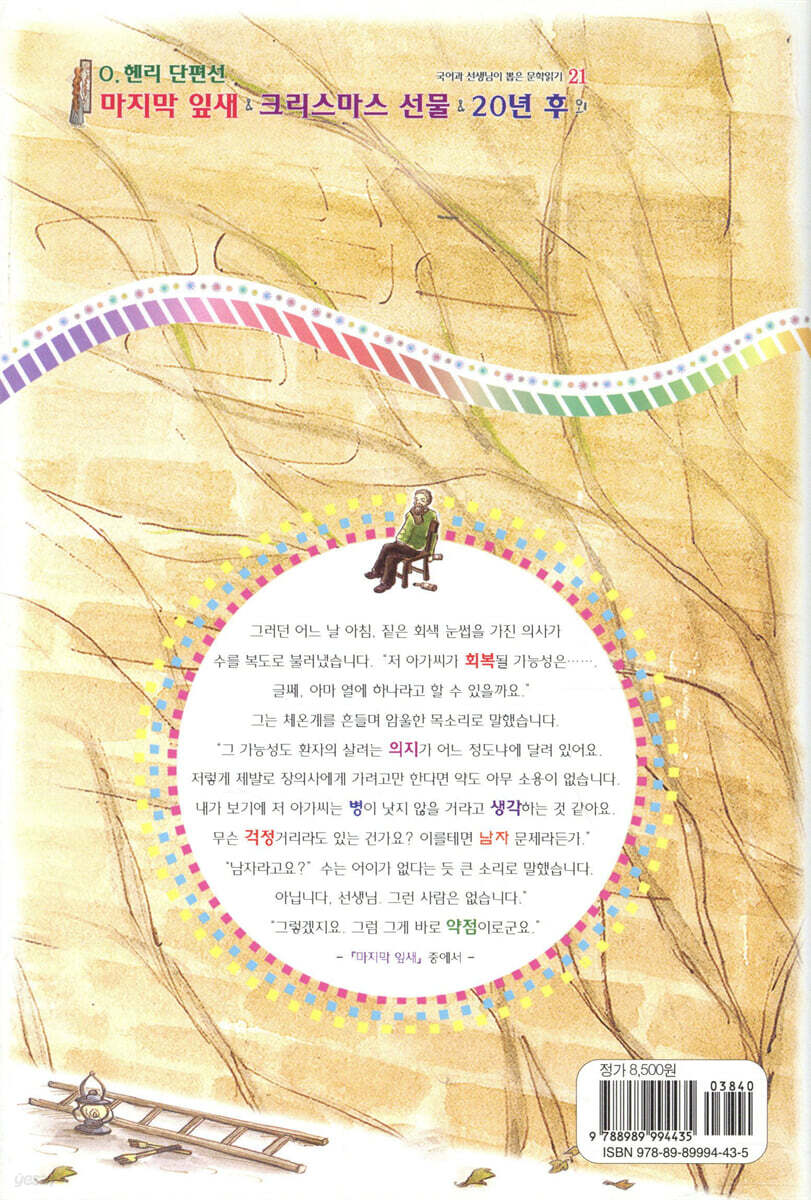 O. 헨리 단편선
국어과 선생님이 뽑은 문학읽기 21
마지막 잎새 & 크리스마스 선물 & 20년 후 외
그러던 어느 날 아침, 짙은 회색 눈썹을 가진 의사가
수를 복도로 불러냈습니다. "저 아가씨가 회복될 가능성은……,
글쎄, 아마 열에 하나라고 할 수 있을까요."
그는 체온계를 흔들며 암울한 목소리로 말했습니다.
"그 가능성도 환자의 살려는 의지가 어느 정도냐에 달려 있어요.
저렇게 제발로 장의사에게 가려고만 한다면 약도 아무 소용이 없습니다.
내가 보기에 저 아가씨는 병이 낫지 않을 거라고 생각하는 것 같아요.
무슨 걱정거리라도 있는 건가요? 이를테면 남자 문제라든가."
"남자라고요?" 수는 어이가 없다는 듯 큰 소리로 말했습니다.
아닙니다, 선생님. 그런 사람은 없습니다."
"그렇겠지요. 그럼 그게 바로 약점이로군요."
- 『마지막 잎새』 중에서 -
정가 8,500원
03840
9 788989 994435
ISBN 978-89-89994-43-5
yes24